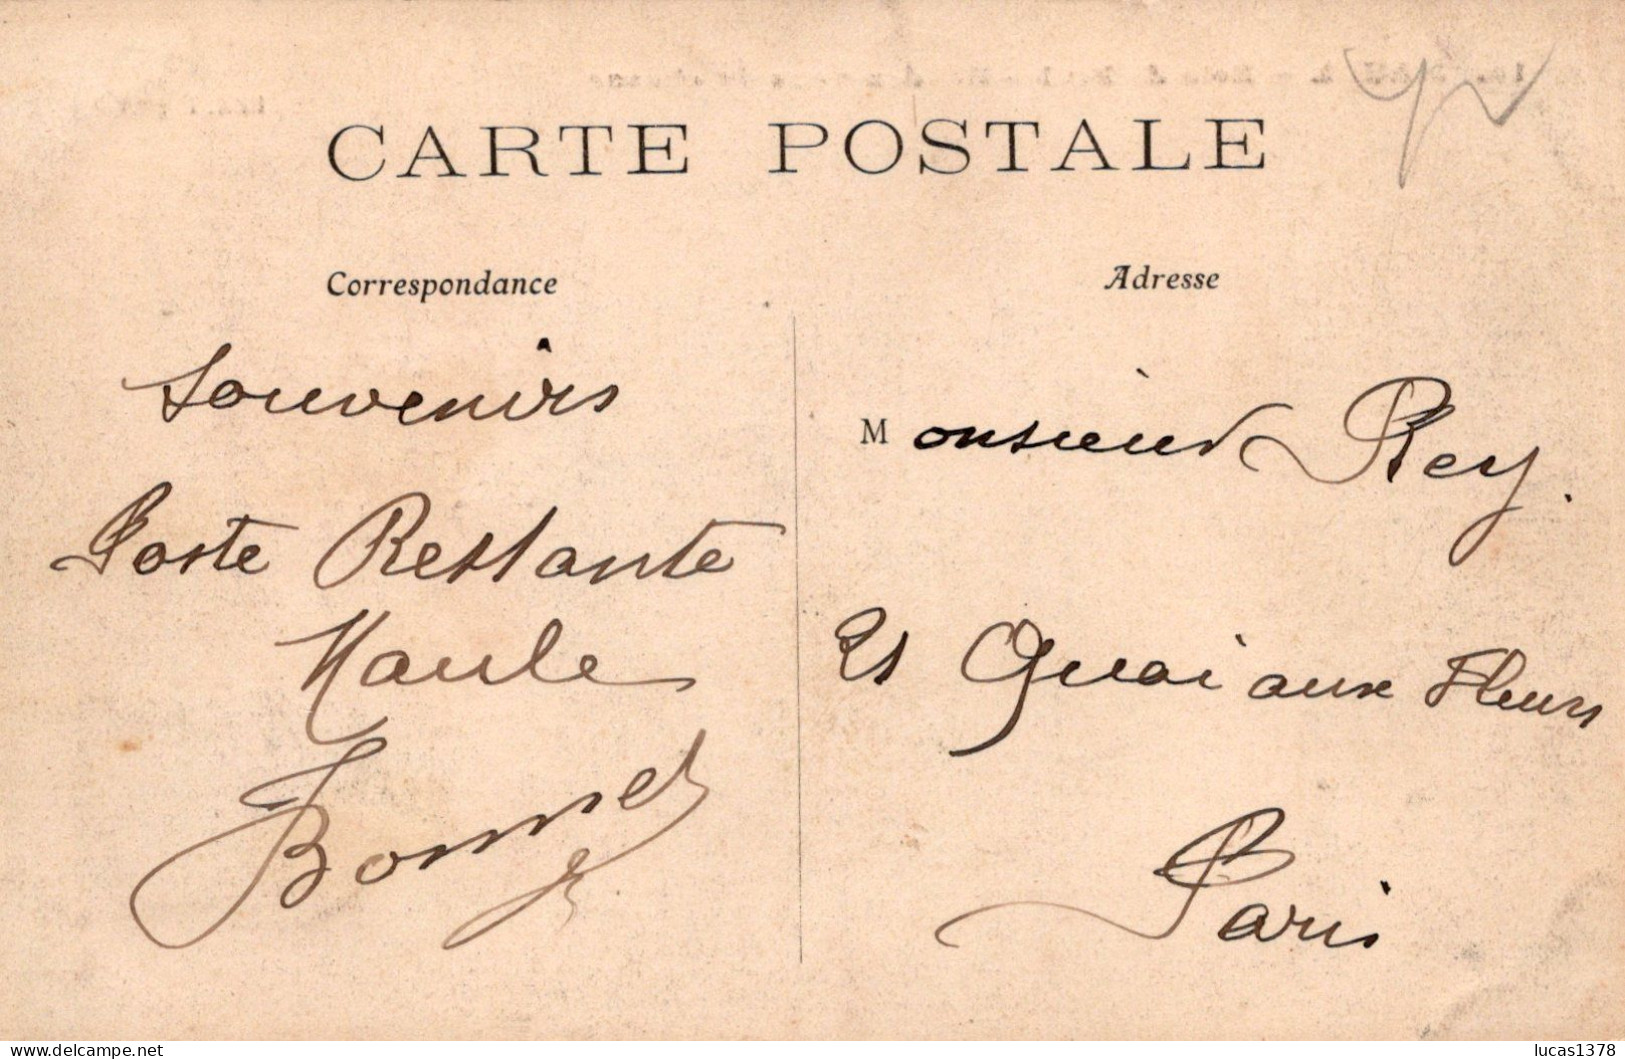 CARTE POSTALE
Correspondance
Souvenirs
Poste Restante
Maule
Bonnet
Adresse
Monsieur Rey.
21 Quai aux Fleurs
Paris
lucas1378